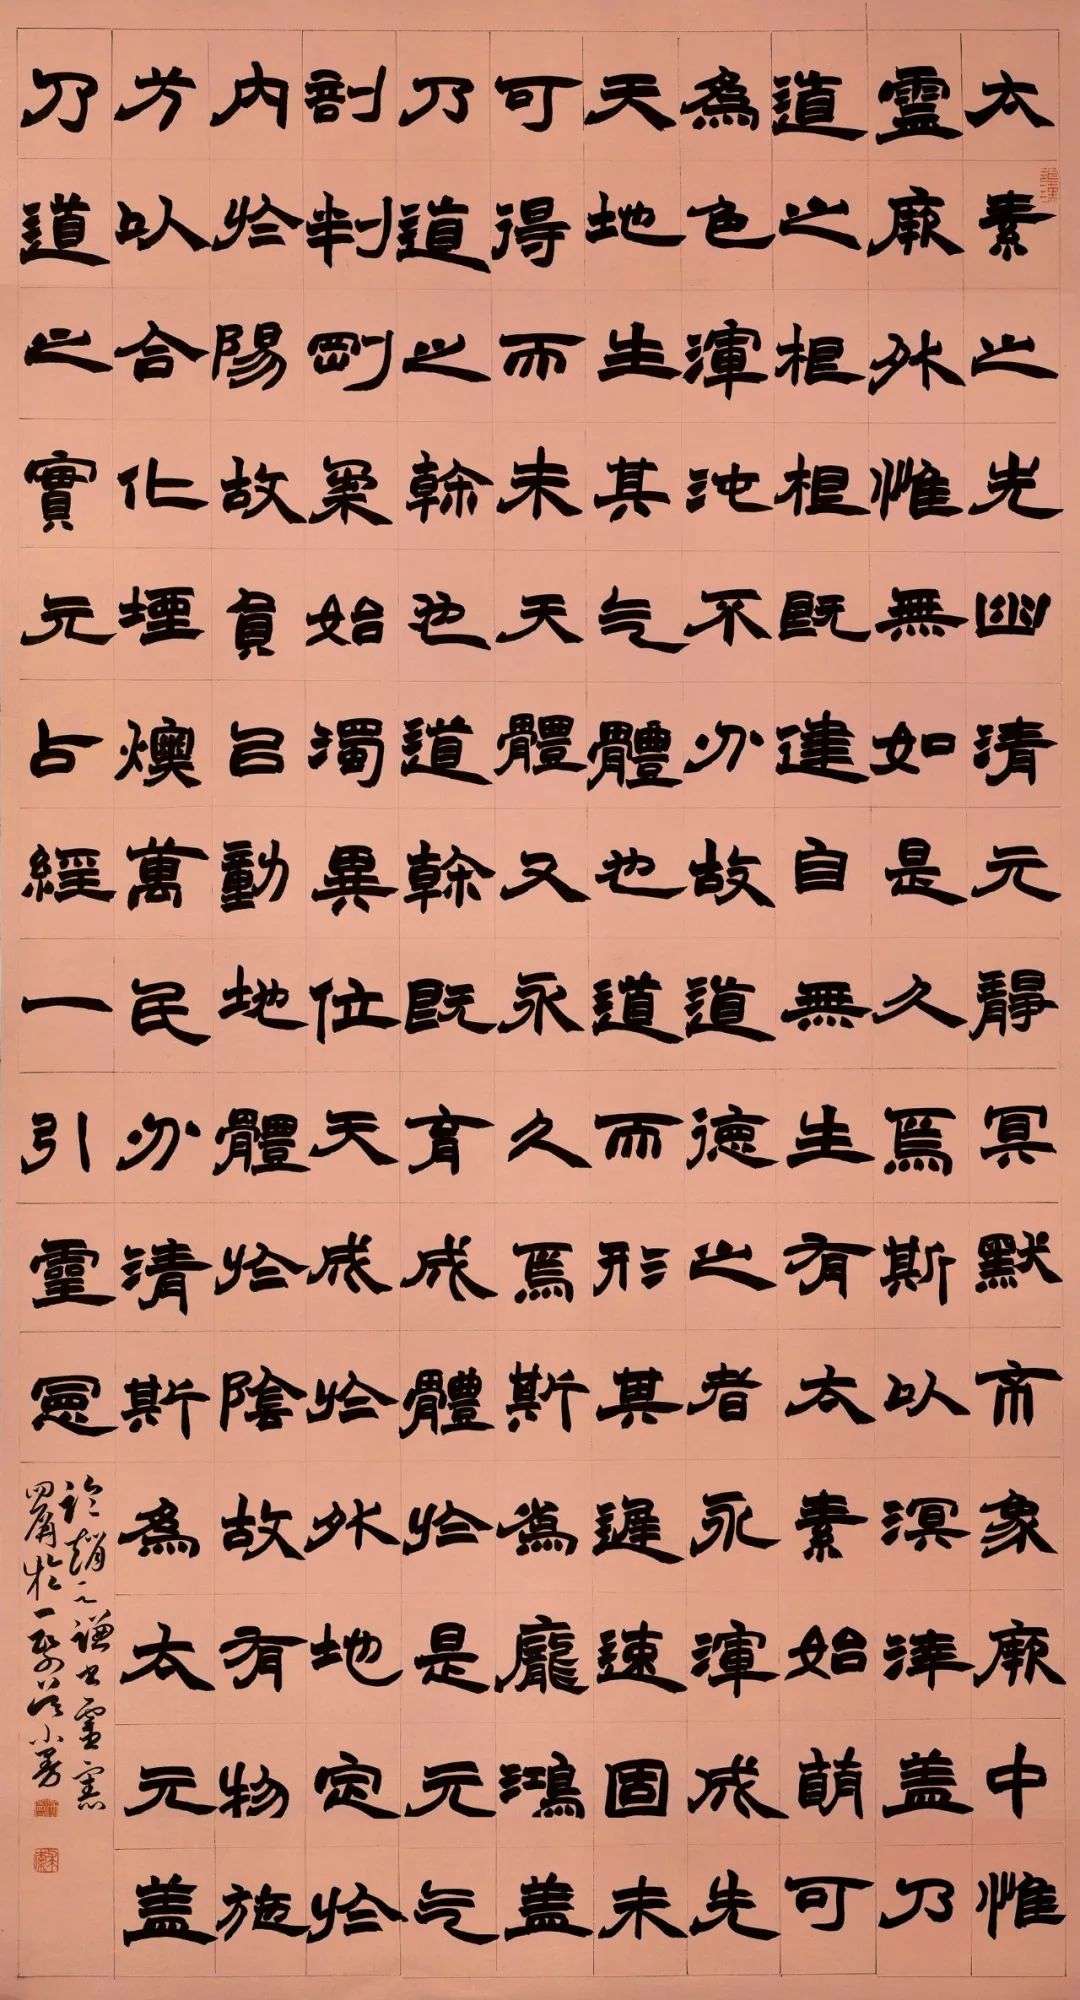 太素之先幽清元靜冥默象厥中惟
靈厥外惟無如是久焉斯以溟涬盖乃
道之根根既建自無生有太素始萌可
為色渾沌不分故道德之者永渾成先
天地生其气體也道而形其遲速固未
可得而未天體又永久焉斯為龐鴻盖
乃道之幹也道幹既育成體於是元气
剖判剛柔始濁異位天成於外地定於
内於陽故員㠯動地體於陰故有物施
方以合化堙燠萬民分清斯為太元盖
乃道之實元占經一引靈憲
臨趙之謙書靈憲
四屏於一